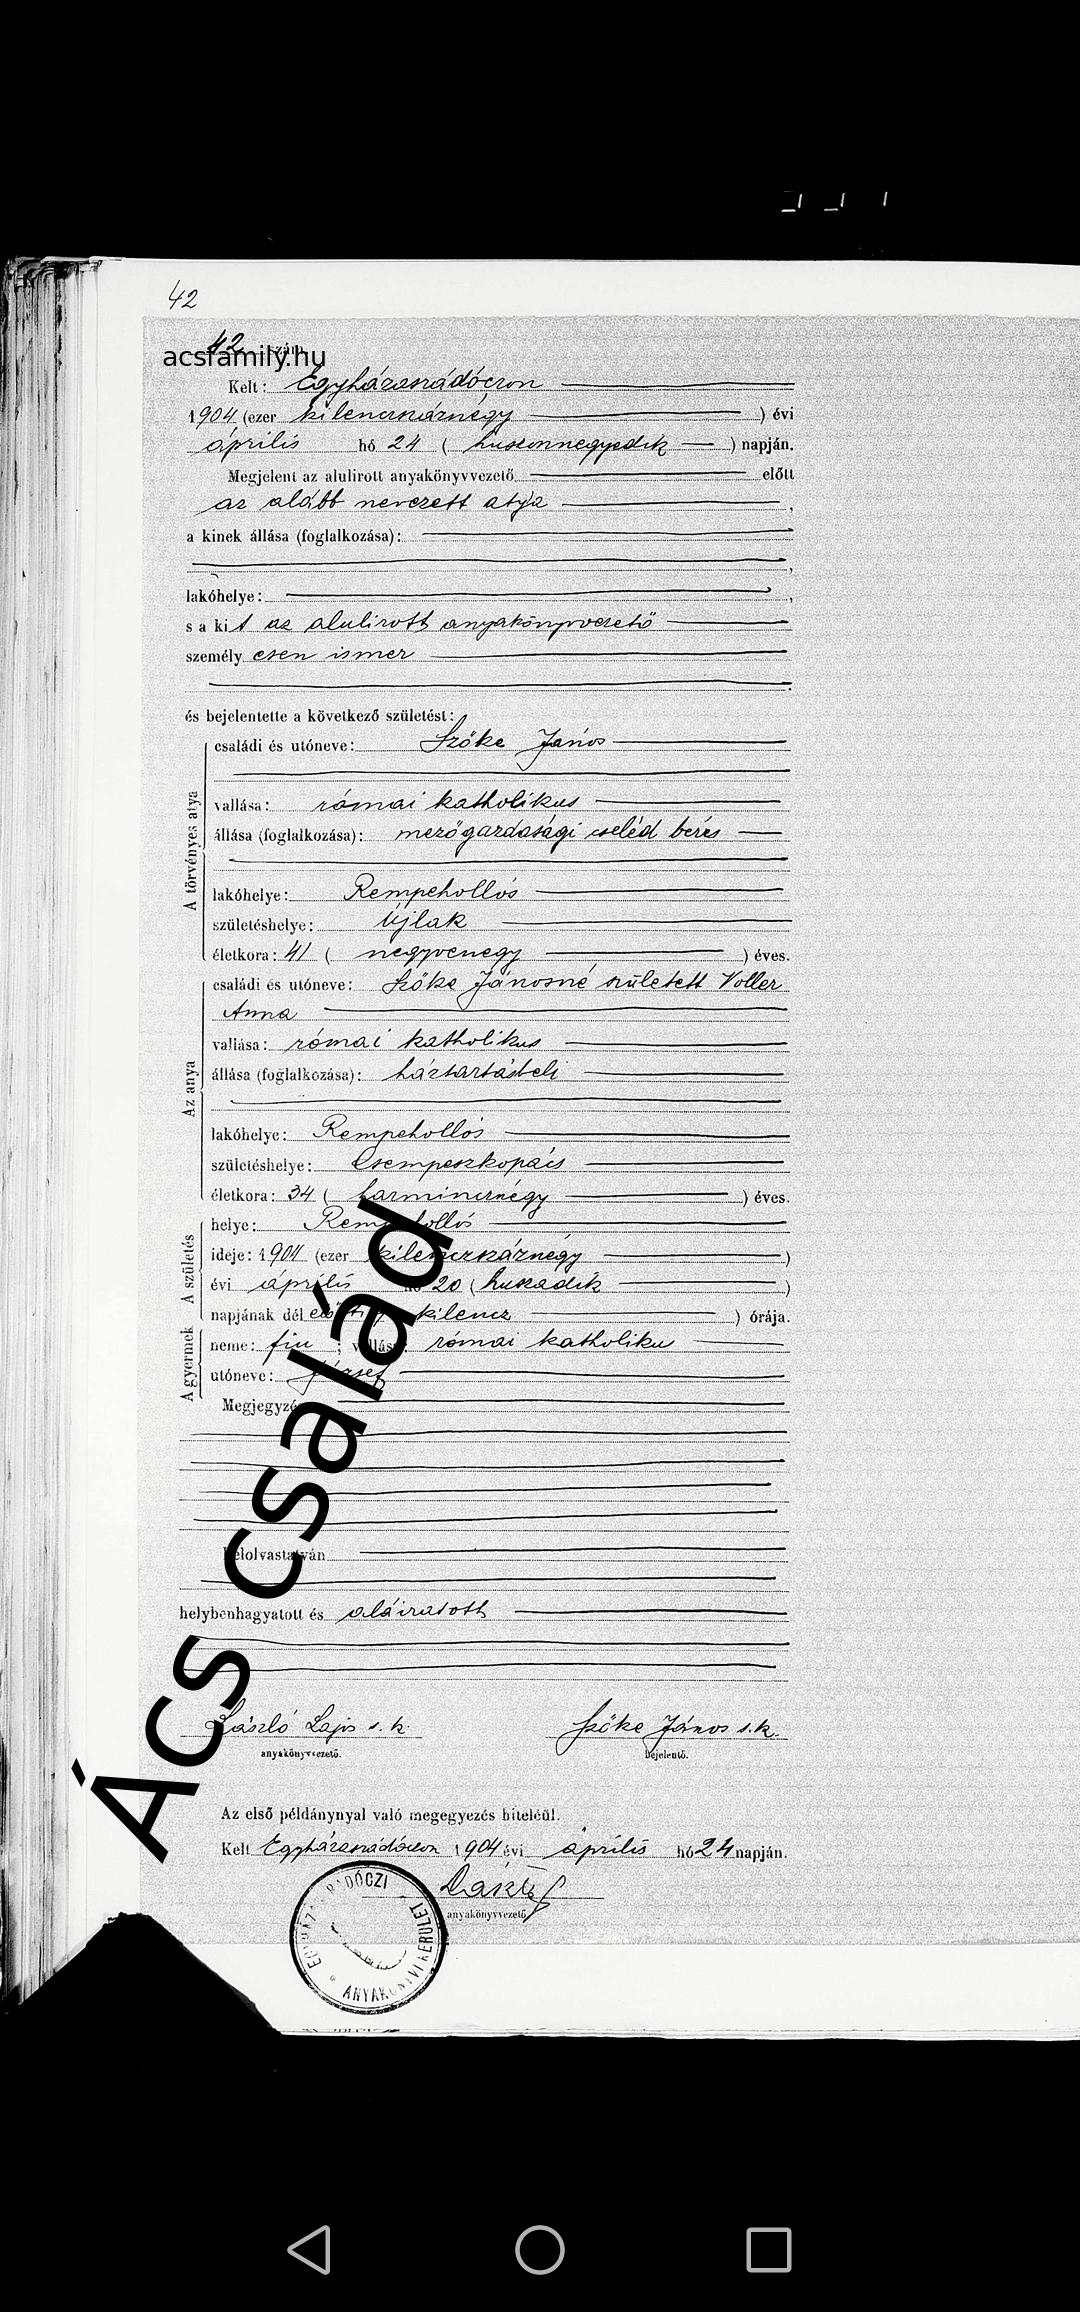 42
42 szám
acsfamily.hu
Kelt: Egyházasrádóczon
1904 (ezer kilenczszáznégy ) évi
április hó 24 ( huszonnegyedik ) napján.
Megjelent az alulirott anyakönyvvezető előtt
az alább nevezett atya ,
a kinek állása (foglalkozása):
,
lakóhelye: ,
s a kit az alulirott anyakönyvvezető
személyesen ismer
és bejelentette a következő születést:
A törvényes atya
családi és utóneve: Szőke János
vallása: római katholikus
állása (foglalkozása): mezőgazdasági cseléd béres
lakóhelye: Rempehollós
születéshelye: Újlak
életkora: 41 ( negyvenegy ) éves.
Az anya
családi és utóneve: Szőke Jánosné született Voller
Anna
vallása: római katholikus
állása (foglalkozása): háztartásbeli
lakóhelye: Rempehollós
születéshelye: Csempeszkopács
életkora: 34 ( harmincznégy ) éves.
A születés
helye: Rempehollós
ideje: 1904 (ezer kilenczszáznégy )
évi április hó 20 ( huszadik )
napjának dél előtti kilencz ) órája.
A gyermek
neme: fiu ; vallása: római katholiku
utóneve: József
Megjegyzés
Felolvastatván
helybenhagyatott és aláiratott
László Lajos s. k.
Szőke János s. k.
anyakönyvvezető.
bejelentő.
Az első példánynyal való megegyezés hiteléül.
Kelt Egyházasrádóczon 1904 évi április hó 24 napján.
anyakönyvvezető
EGYHÁZASRÁDÓCZI
ANYAKÖNYVI KERÜLET
Ács család